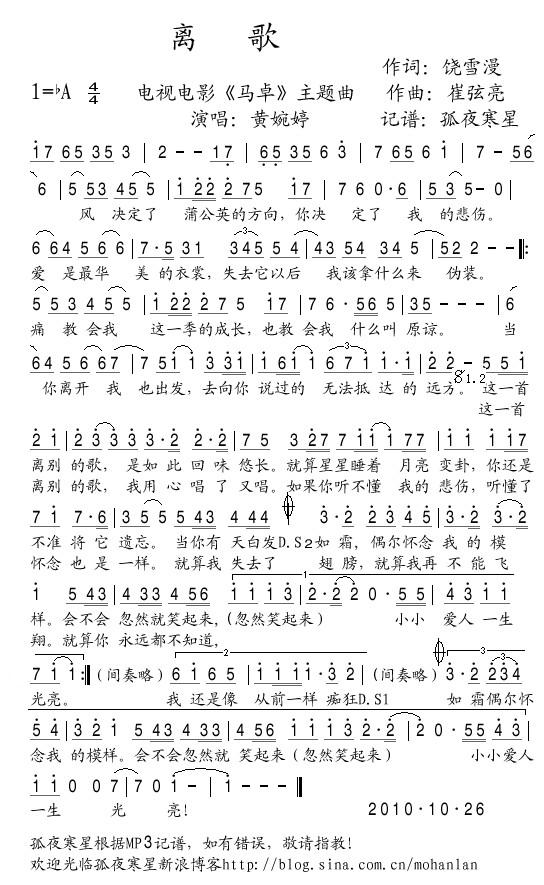 离 歌
作词：饶雪漫
1=♭A 4/4 电视电影《马卓》主题曲 作曲：崔弦亮
演唱：黄婉婷 记谱：孤夜寒星
17 65 35 3 | 2 - - 17 | 65 35 6 3 | 7 65 6 1 | 7 - 56
6 | 5 53 45 5 | 1 22 2 75 17 | 7 6 0·6 | 5 3 5- 0 |
风 决定了 蒲公英的方向，你决 定了 我 的悲伤。
6 64 5 6 6 | 7·5 31 345 54 | 43 54 34 5 | 52 2 - - ‖:
爱 是最华 美 的衣裳，失去它以后 我该拿什么来 伪装。
5 53 4 5 5 | 1 22 2 7 5 17 | 7 6 · 56 5 | 35 - - | 6
痛 教 会我 这一季的成长，也教会我 什么叫 原谅。 当
64 5 6 67 | 7 51 1 3 31 | 1 61 1 6 7 1 1·1 | 2 2 - 5 5 1
你离开 我 也出发，去向你 说过的 无法抵 达 的远方。 这一首
1.2
这一首
2 1 | 2 3 3 3 3·2 2·2 | 7 5 3 27 7 11 1 77 | 1 1 1 17
离别 的歌， 是如 此 回 味 悠长。就算星星睡着 月亮 变卦，你还是
离别 的歌， 我用 心 唱 了 又唱。如果你听不懂 我的 悲伤，听懂了
7 1 7·6 | 3 5 5 5 43 4 44 3·2 2 3 4 5 | 3·2 3·2
不准 将 它 遗忘。 当你有 天白发D.S2如 霜，偶尔怀念 我 的 模
怀念 也 是 一样。 就算我 失去了 翅 膀，就算我再 不 能 飞
1 5 43 | 4 33 4 56 | 1 1 1 3 | 2·2 2 0 · 5 5 | 4 3 1 1
1
样。会不会 忽然就笑起来，(忽然笑起来) 小小 爱人 一生
翔。就算你 永远都不知道，
7 1 1 :‖ (间奏略) | 6 1 6 5 | 1 1 1 1· 3·2 (间奏略) 3·2 2 3 4
2
3
光亮。 我 还是像 从前一样 痴狂D.S1 如 霜偶尔怀
5 4 | 3 2 1 5 43 4 33 | 4 56 1 1 1 3 2·2 | 2 0 · 55 4 3
念我 的模样。会不会忽然就 笑起来(忽然笑起来) 小小爱人
1 1 0 0 7 | 7 0 1 - | 1 - - - ‖
一生 光 亮！ 2010·10·26
孤夜寒星根据MP3记谱，如有错误，敬请指教！
欢迎光临孤夜寒星新浪博客http://blog.sina.com.cn/mohanlan